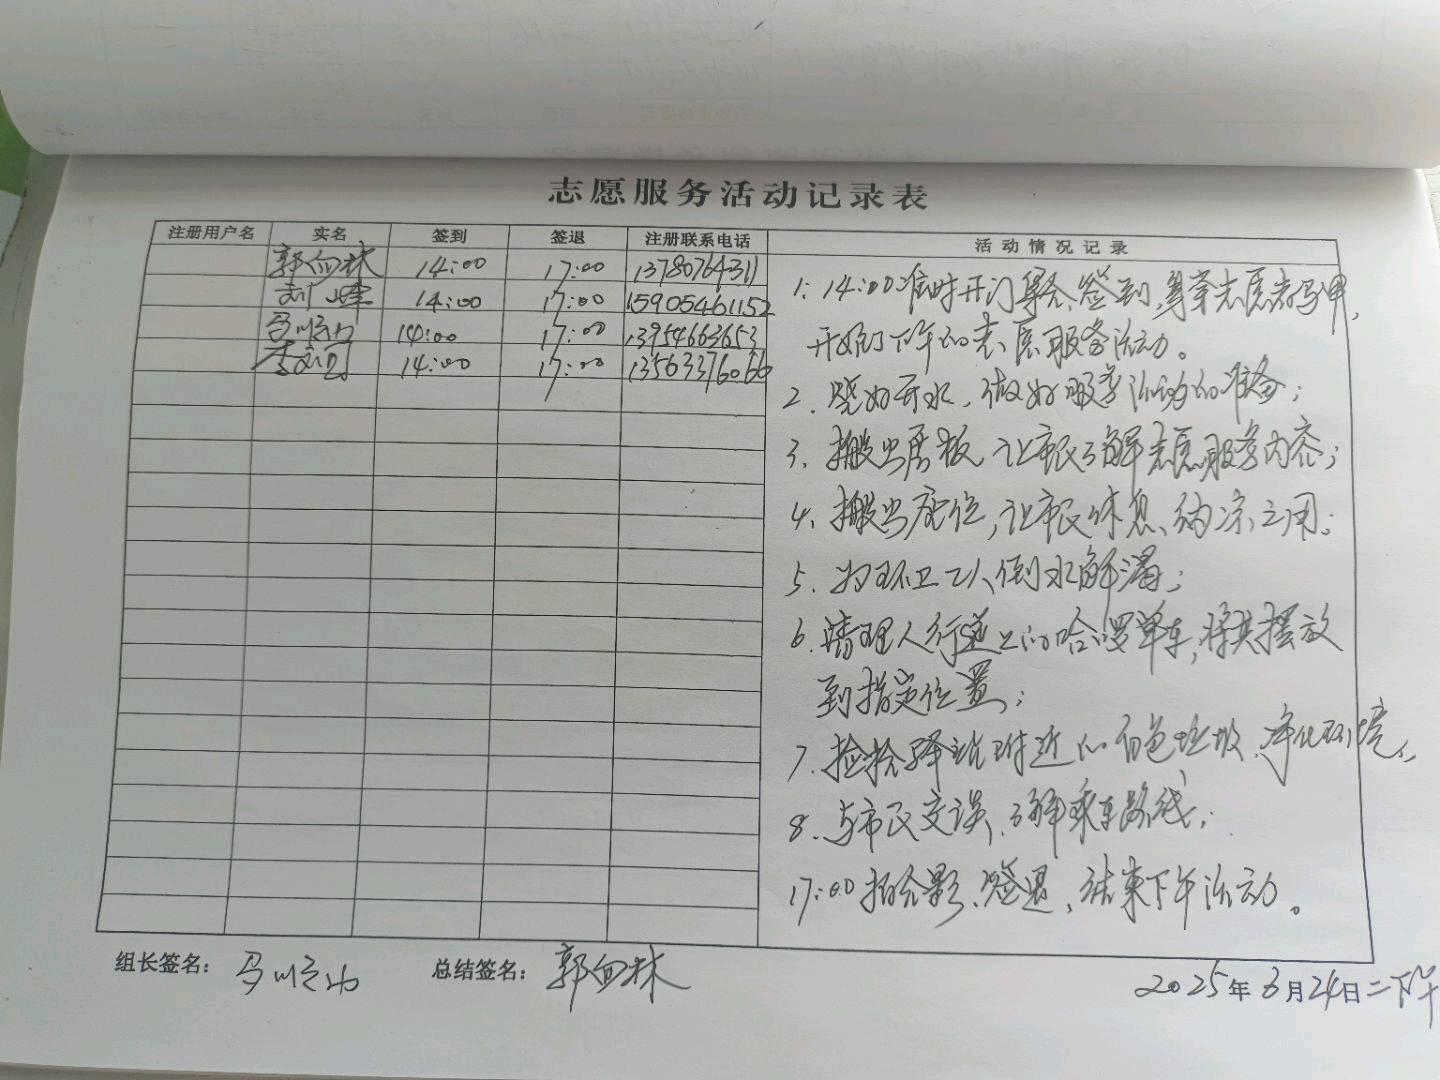 志愿服务活动记录表
注册用户名 实名 签到 签退 注册联系电话 活动情况记录
郭向林 14:00 17:00 13780764311
刘峰 14:00 17:00 15905461152
14:00 17:00 13954663653
14:00 17:00 13563376066
1. 14:00准时开门集合、签到,身穿志愿者马甲,
开始了下午的志愿服务活动。
2、烧好开水,做好服务活动的准备;
3、搬出展板,让市民了解志愿服务内容;
4、搬出座位,让市民休息、纳凉之用;
5、为环卫工人倒水解渴;
6、清理人行道上的哈啰单车,将其摆放
到指定位置;
7、捡拾驿站附近的白色垃圾,净化环境;
8、与市民交谈,了解乘车路线;
17:00拍合影、签退,结束下午活动。
组长签名: 总结签名:郭向林
2025年6月24日二下午